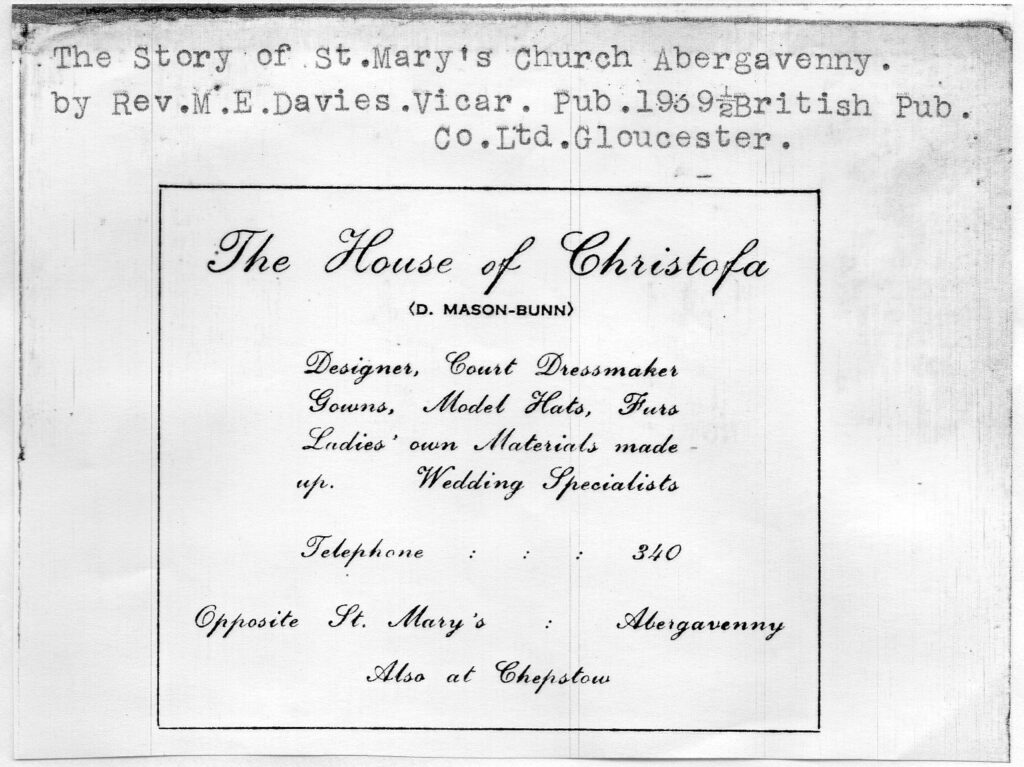 The Story of St.Mary's Church Abergavenny.
by Rev.M.E.Davies.Vicar. Pub.1939½British Pub.
Co.Ltd.Gloucester.
The House of Christofa
(D. MASON-BUNN)
Designer, Court Dressmaker
Gowns, Model Hats, Furs
Ladies' own Materials made
up. Wedding Specialists
Telephone : : : 340
Opposite St. Mary's : Abergavenny
Also at Chepstow